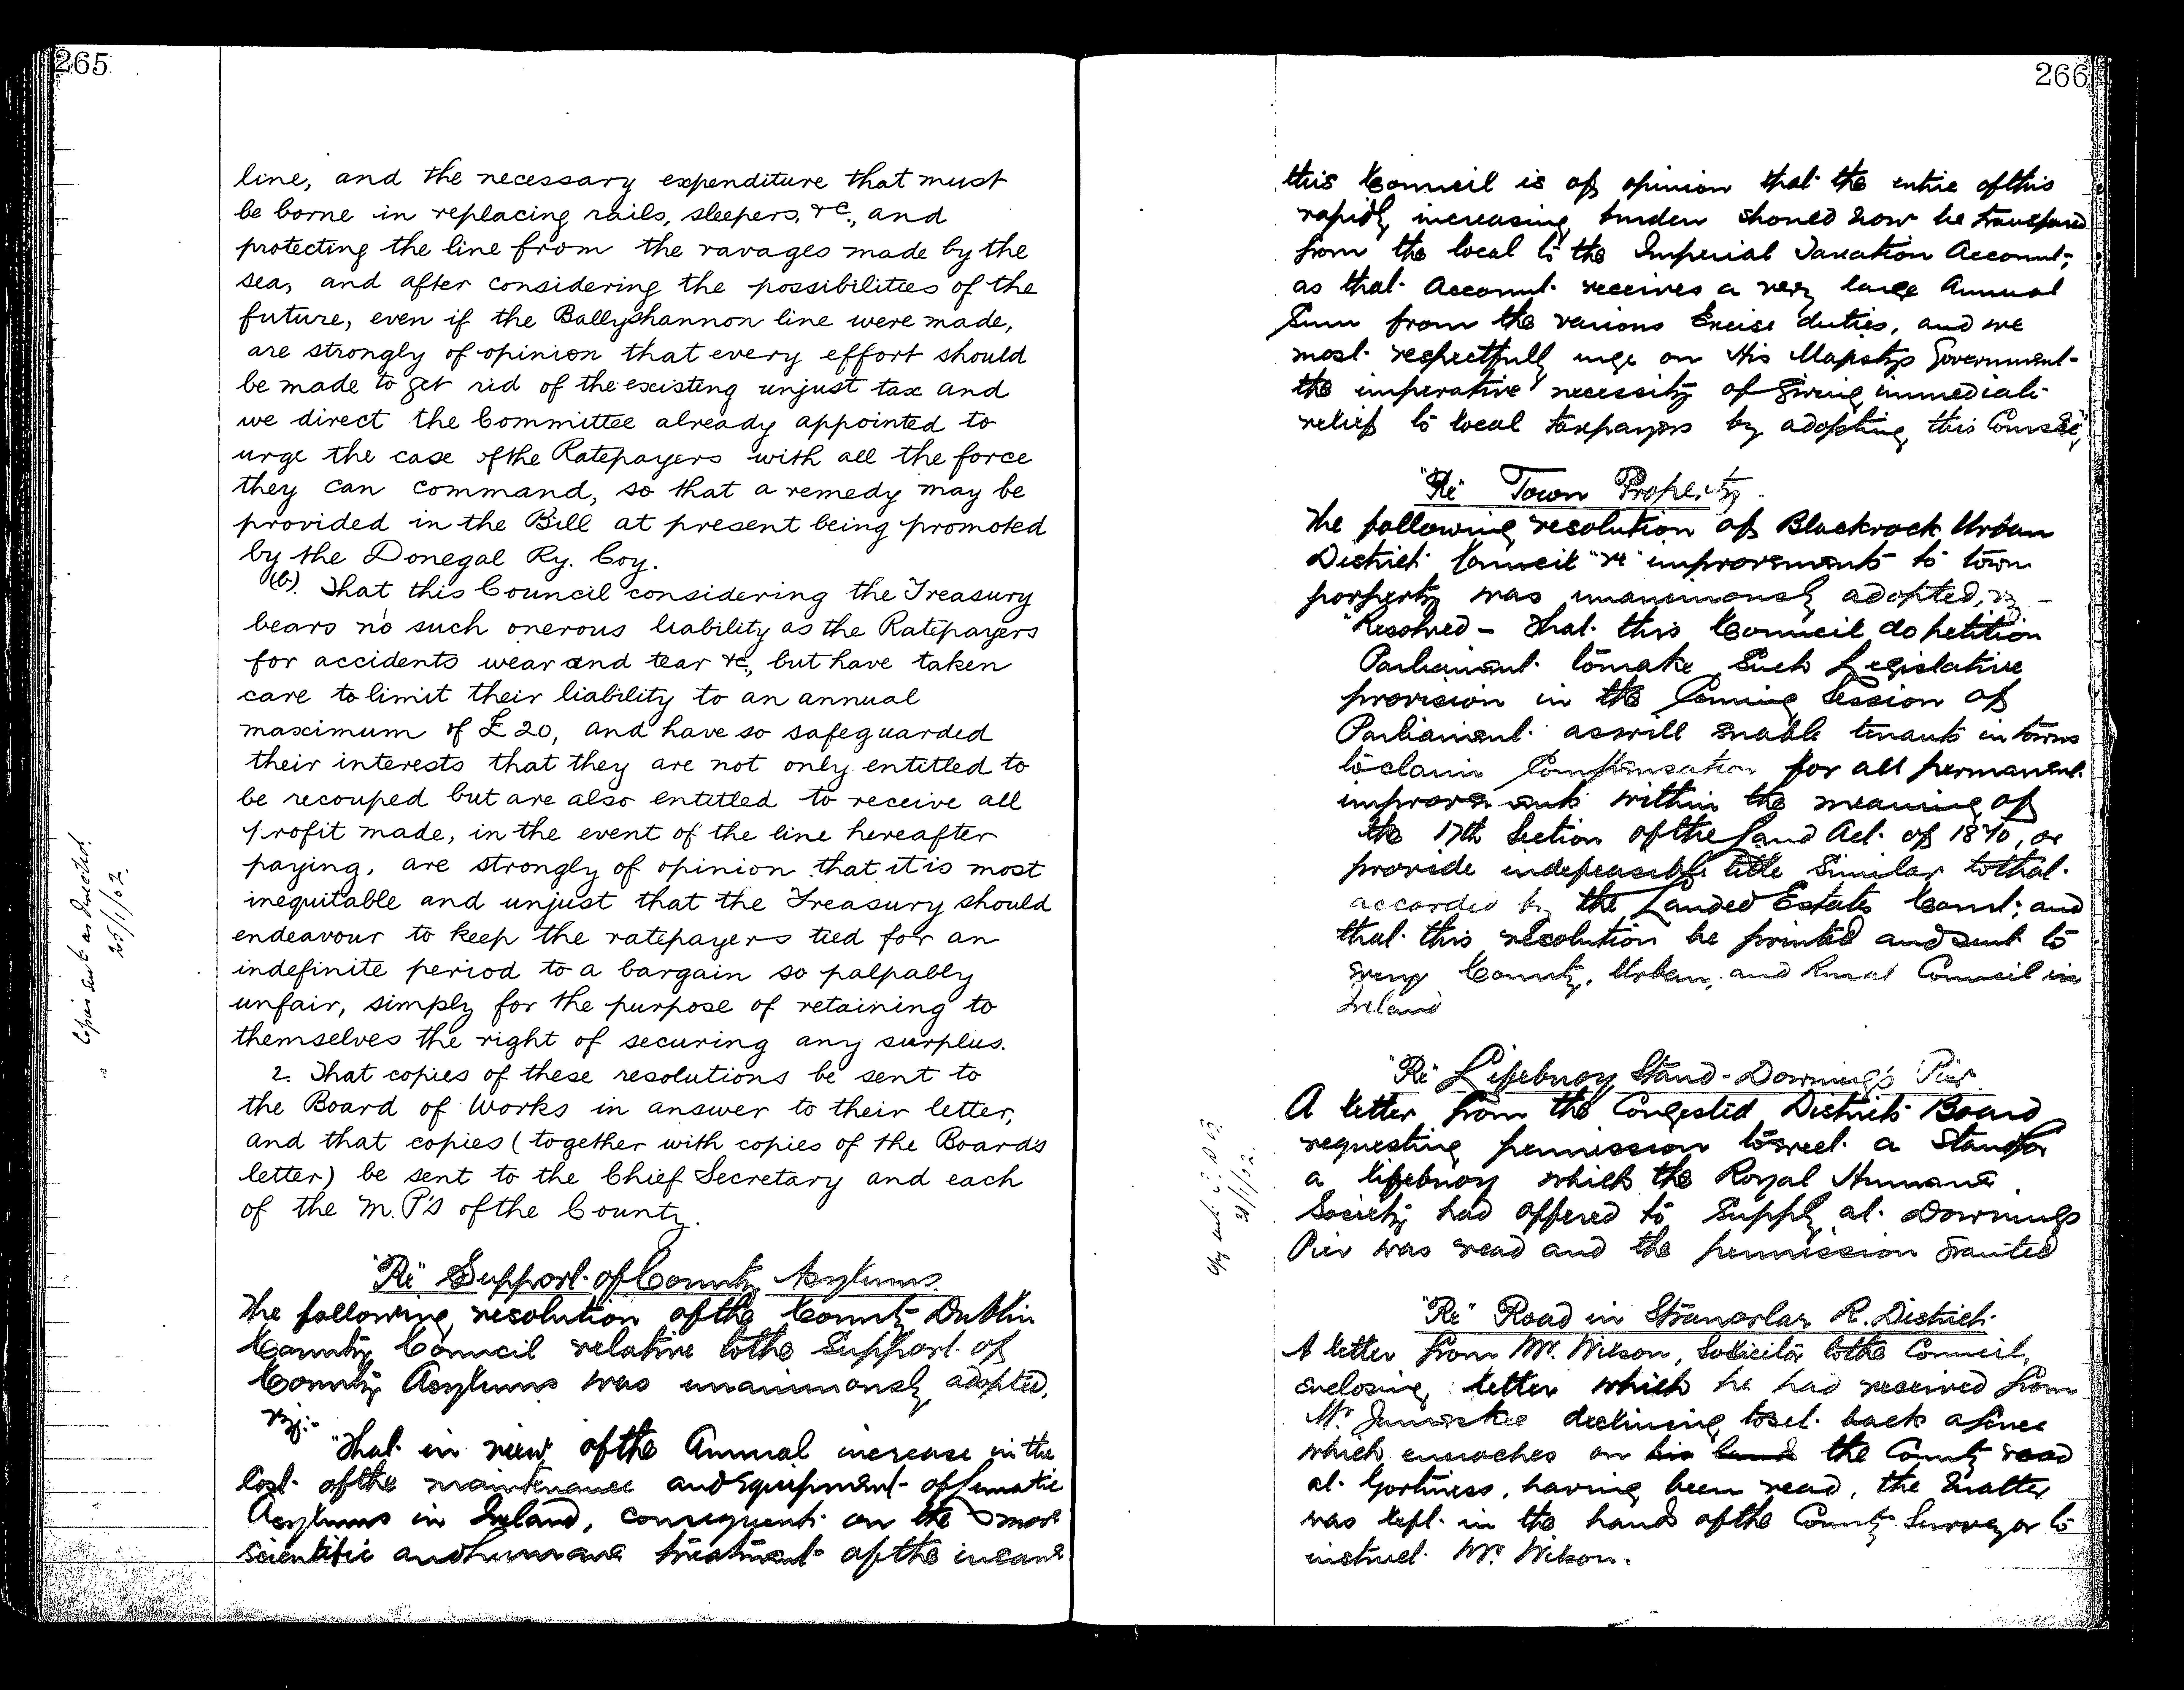 265
line, and the necessary expenditure that must
be borne in replacing rails, sleepers, &c., and
protecting the line from the ravages made by the
sea, and after considering the possibilities of the
future, even if the Ballyshannon line were made,
are strongly of opinion that every effort should
be made to get rid of the existing unjust tax and
we direct the Committee already appointed to
urge the case of the Ratepayers with all the force
they can command, so that a remedy may be
provided in the Bill at present being promoted
by the Donegal Ry. Coy.
(b). That this Council considering the Treasury
bears no such onerous liability as the Ratepayers
for accidents wear and tear &c., but have taken
care to limit their liability to an annual
maximum of £20, and have so safeguarded
their interests that they are not only entitled to
be recouped but are also entitled to receive all
profit made, in the event of the line hereafter
paying, are strongly of opinion that it is most
inequitable and unjust that the Treasury should
endeavour to keep the ratepayers tied for an
indefinite period to a bargain so palpably
unfair, simply for the purpose of retaining to
themselves the right of securing any surplus.
2. That copies of these resolutions be sent to
the Board of Works in answer to their letter,
and that copies (together with copies of the Boards
letter) be sent to the Chief Secretary and each
of the M.P's of the County.
Copies sent as directed
25/1/02.
"Re" Support of County Asylums
The following resolution of the County Dublin
County Council relative to the Support of
County Asylums was unanimously adopted,
viz:-
"That in view of the Annual increase in the
Cost of the maintenance and equipment of Lunatic
Asylums in Ireland, consequent on the more
scientific and humane treatment of the insane
266
this Council is of opinion that the entire of this
rapidly increasing burden should now be transferred
from the local to the Imperial Taxation Account;
as that Account receives a very large Annual
Sum from the various Excise duties, and we
most respectfully urge on His Majestys Government
the imperative necessity of giving immediate
relief to local taxpayers by adopting this Course"
"Re" Town Property.
The following resolution of Blackrock Urban
District Council "re" improvements to town
porperty was unanimously adopted, viz -
"Resolved - That this Council do petition
Parliament to make such Legislative
provision in the Coming Session of
Parliament as will enable tenants in towns
to claim Compensation for all permanent
improvements within the meaning of
the 17th Section of the Land Act of 1870, or
provide indefeasible title similar to that
accorded by the Landed Estates Court; and
that this resolution be printed and sent to
every County, Urban, and Rural Council in
Ireland
"Re" Lifebuoy Stand - Downings Pier
A letter from the Congested Districts Board
requesting permission to erect a Stand for
a lifebuoy which the Royal Humane
Society had offered to supply at Downings
Pier was read and the permission granted
Copy sent C.D.B.
"Re" Road in Stranorlar R. District
A letter from Mr. Wilson, Solicitor to the Council,
enclosing letter which he had received from
Mr. declining to set back a fence
which encroaches on his land the County road
at Gortiness, having been read, the matter
was left in the hands of the County Surveyor to
instruct Mr. Wilson.